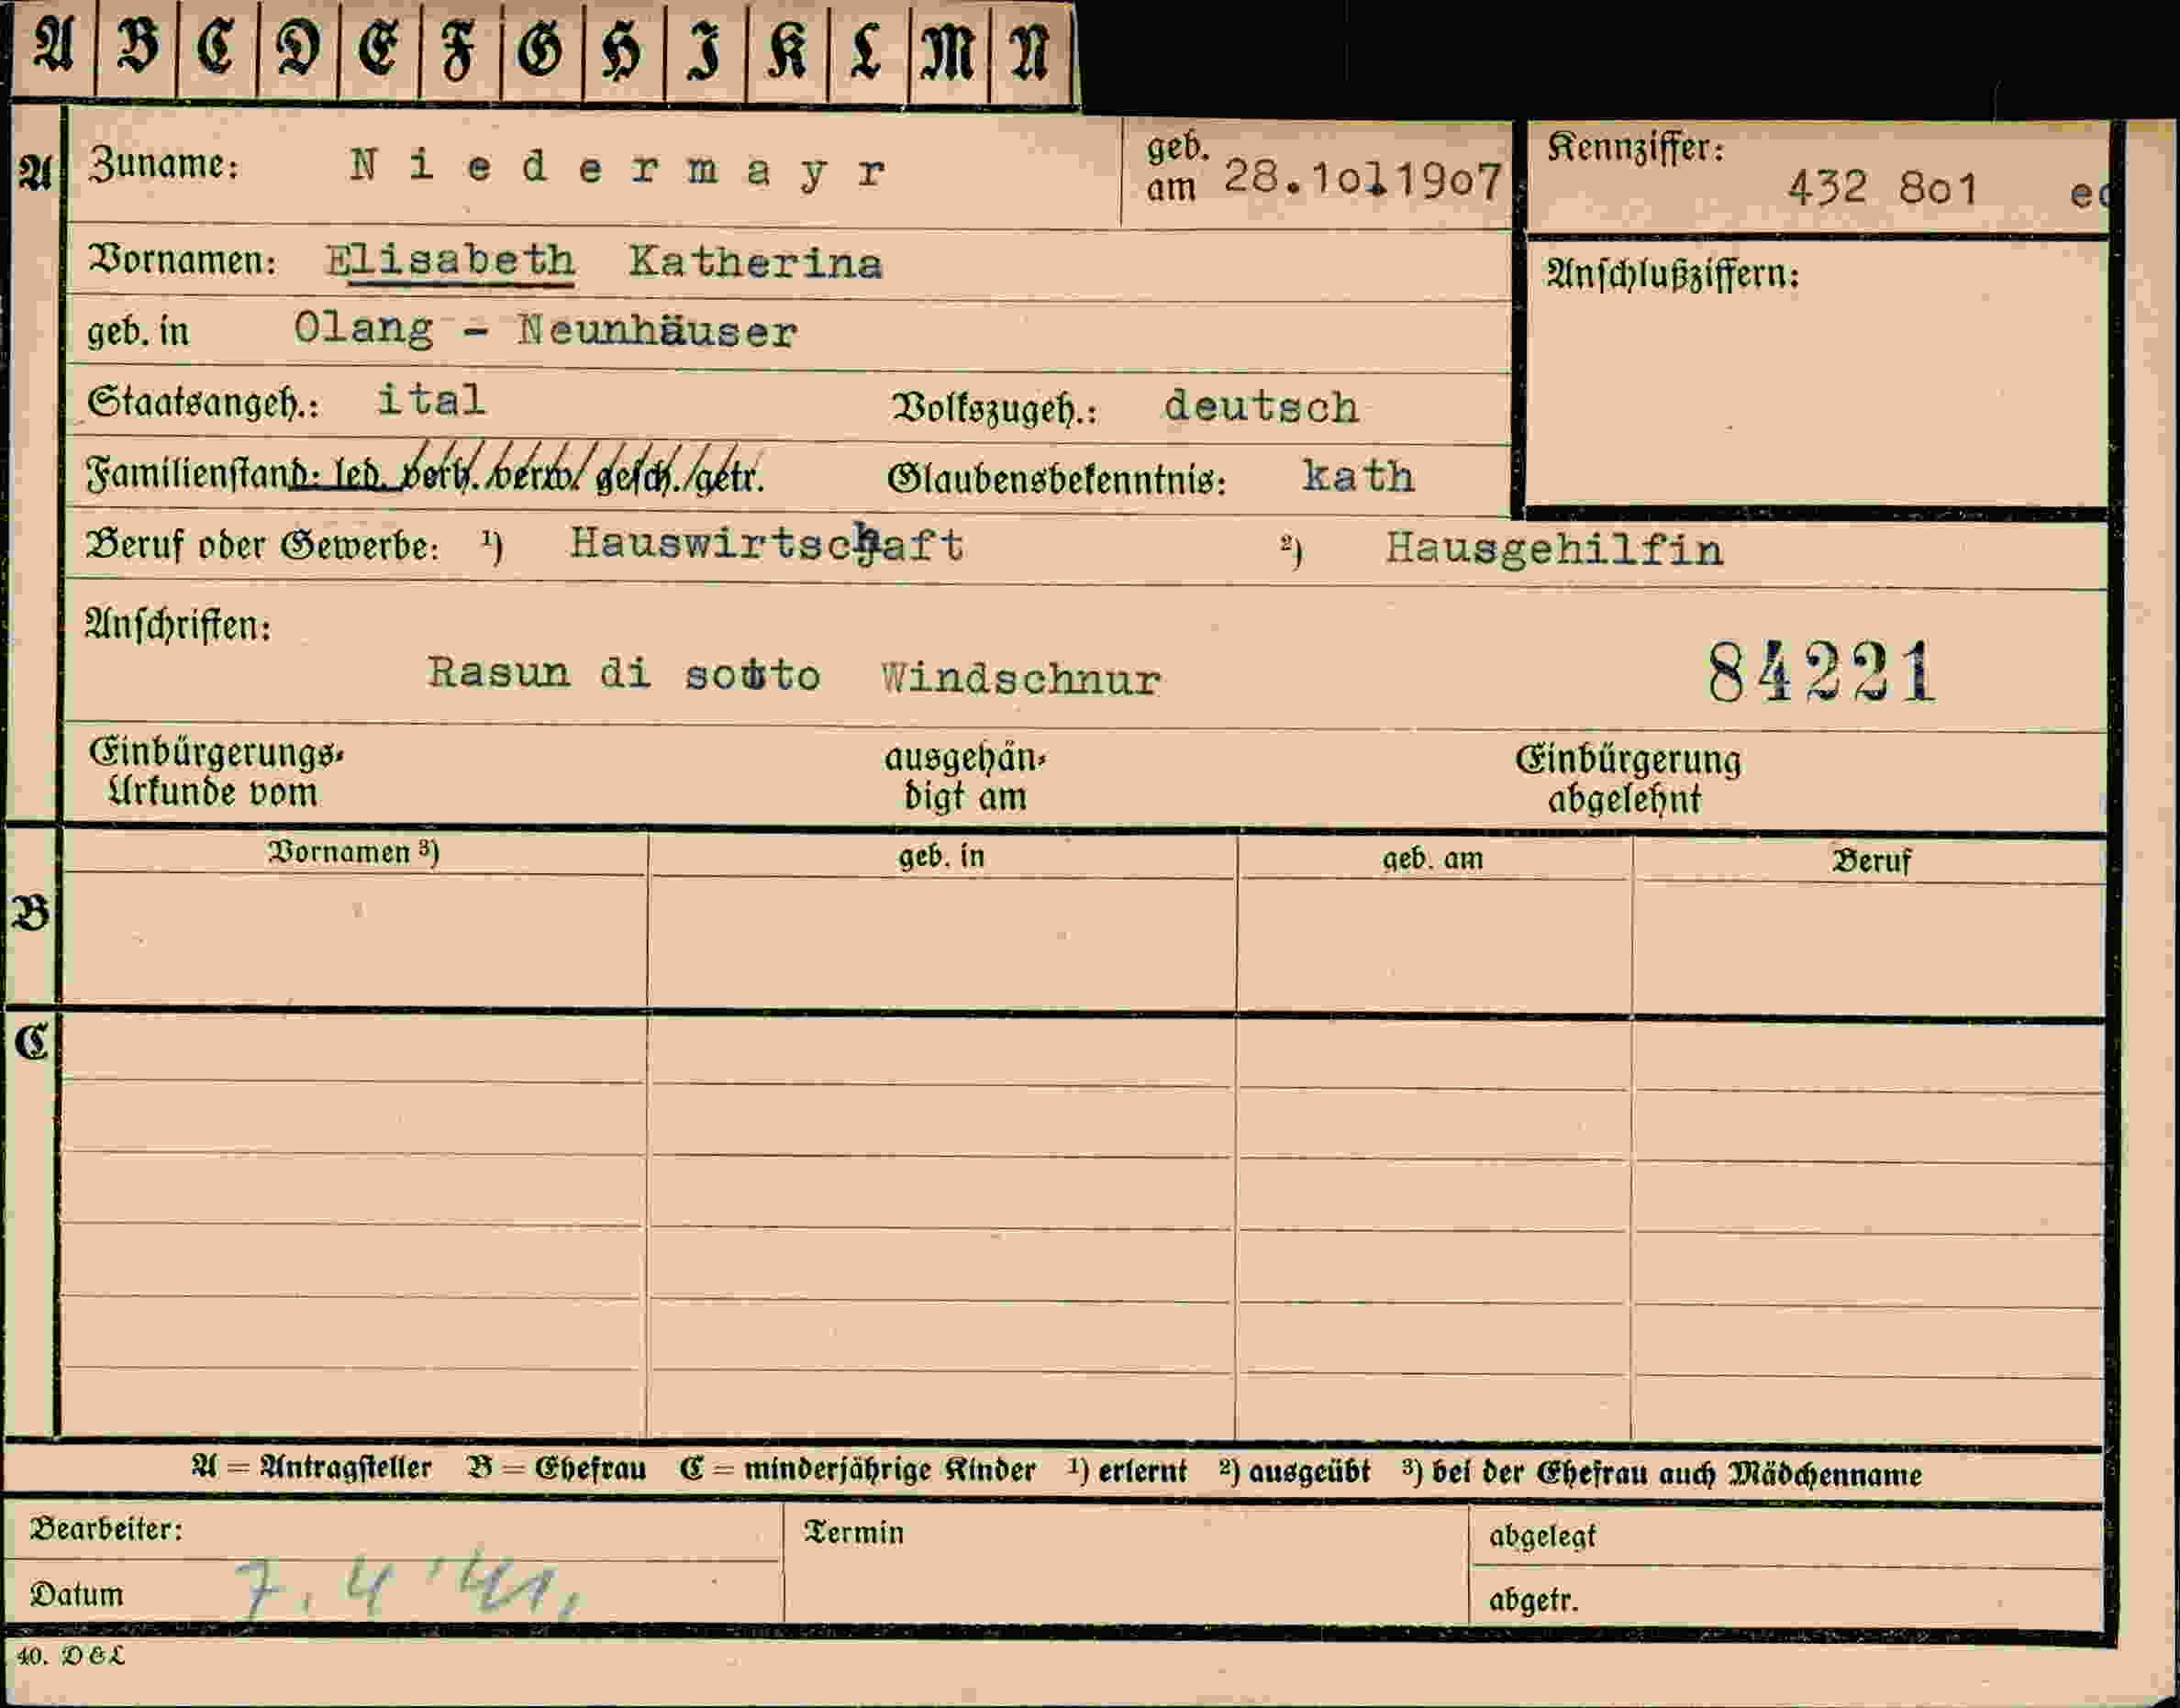 A B C D E F G H I K L M N
A Zuname: Niedermayr geb. am 28.10.1907 Kennziffer: 432 8o1
Vornamen: Elisabeth Katherina Anschlußziffern:
geb. in Olang - Neunhäuser
Staatsangeh.: ital Volkszugeh.: deutsch
Familienstand: led. verh. verw. gesch. getr. Glaubensbekenntnis: kath
Beruf oder Gewerbe: 1) Hauswirtschaft 2) Hausgehilfin
Anschriften:
Rasun di sotto Windschnur 84221
Einbürgerungs- ausgehän- Einbürgerung
Urkunde vom digt am abgelehnt
Vornamen 3) geb. in geb. am Beruf
B
C
A = Antragsteller B = Ehefrau C = minderjährige Kinder 1) erlernt 2) ausgeübt 3) bei der Ehefrau auch Mädchenname
Bearbeiter: Termin abgelegt
Datum 7. 4 '41, abgetr.
40. D & L